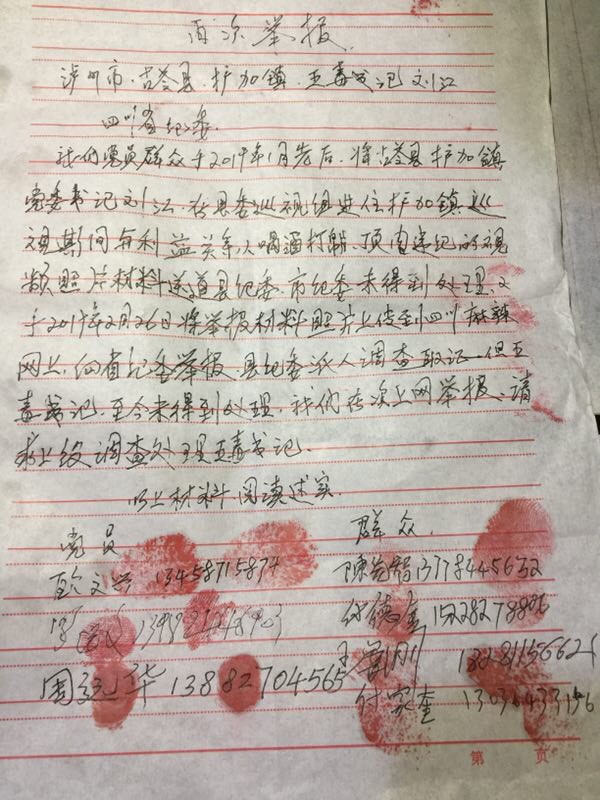 再次举报
泸州市.古蔺县.护加镇.五毒书记刘江
四川省纪委.
我们党员群众于2019年1月先后.将古蔺县护加镇
党委书记刘江.在县委巡视组进住护加镇巡
视期间与利益关系人喝酒打牌.顶风违纪的视
频.照片材料送道县纪委.市纪委未得到处理.又
于2019年2月26日将举报材料照片上传至四川麻辣
网上.向省纪委举报.县纪委派人调查取证.但五
毒书记.至今未得到处理.我们在次上网举报.请
求上级调查处理五毒书记.
以上材料阅读述实.
党员 群众.
文 13458715874 陈 13778445632
德奎
周廷华 13882704565
付家奎
第 页